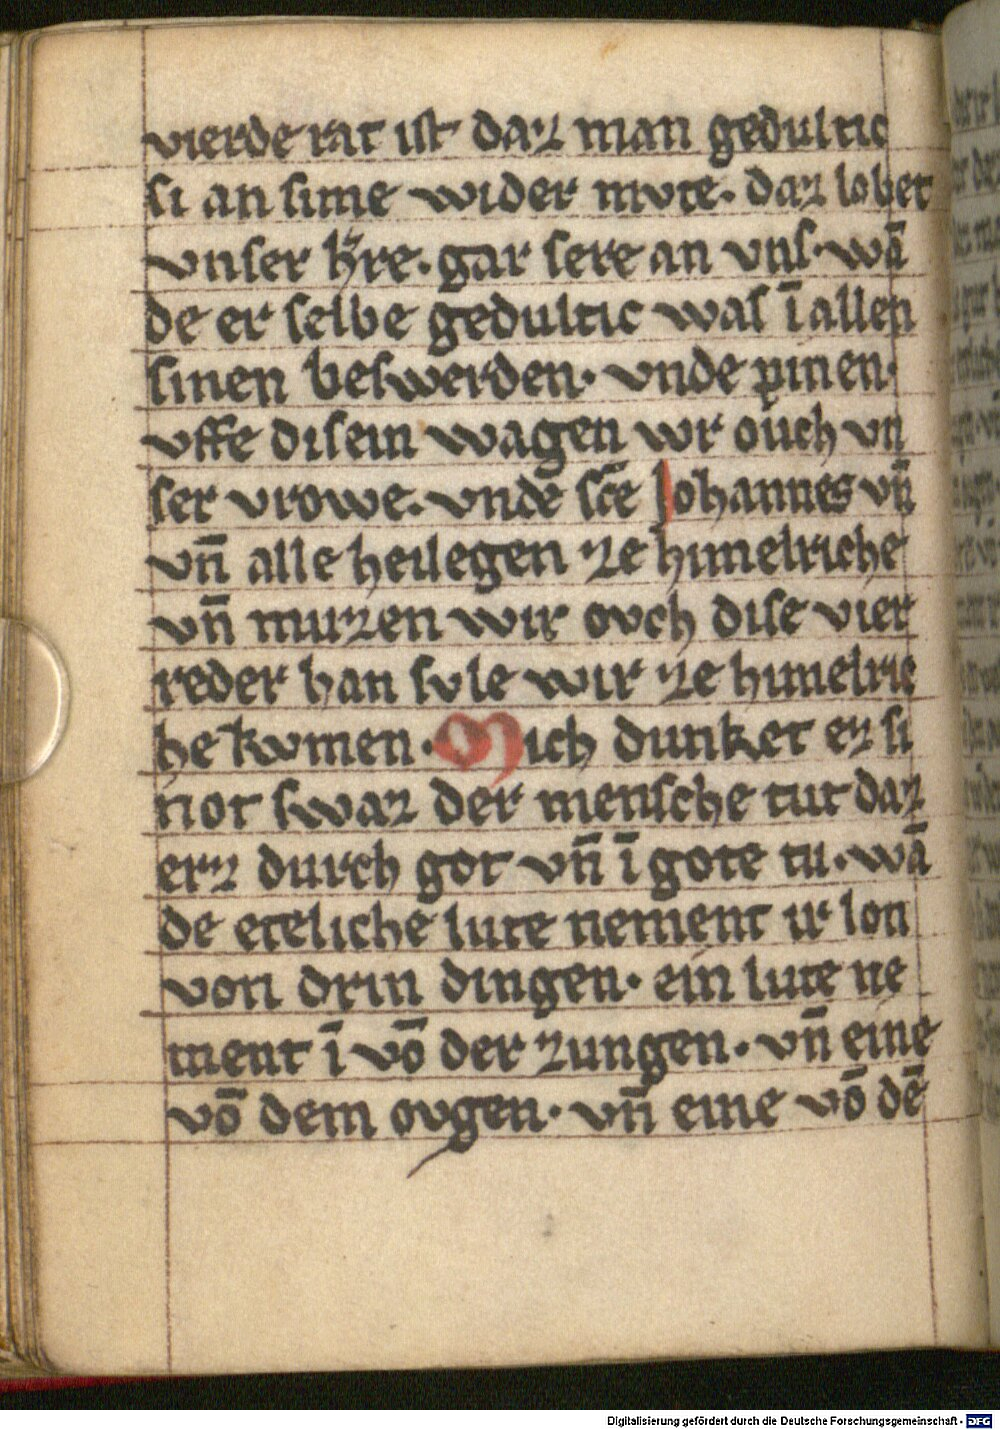 vierde rat ist daz man gedultic
si an sime wider mvte. daz lobet
vnser h̄re. gar sere an vns. wā
de er selbe gedultic was ī allen
sinen beswerden. vnde pinen.
vffe disem wagen wr oůch vn
ser vrowe. vnde sc̄e Iohannes vn̄
vn̄ alle heilegen ze himelriche
vn̄ muzen wir ovch dise vier
reder han svle wir ze himelric
he kvmen. Mich dunket ez si
not swaz der mensche tut daz
erz durch got vn̄ ī gote tu. wā
de eteliche lute nement ir lon
von drin dingen. ein lute ne
ment ī vō der zungen. vn̄ eine
vō dem ovgen. vn̄ eine vō dē
Digitalisierung gefördert durch die Deutsche Forschungsgemeinschaft - DFG